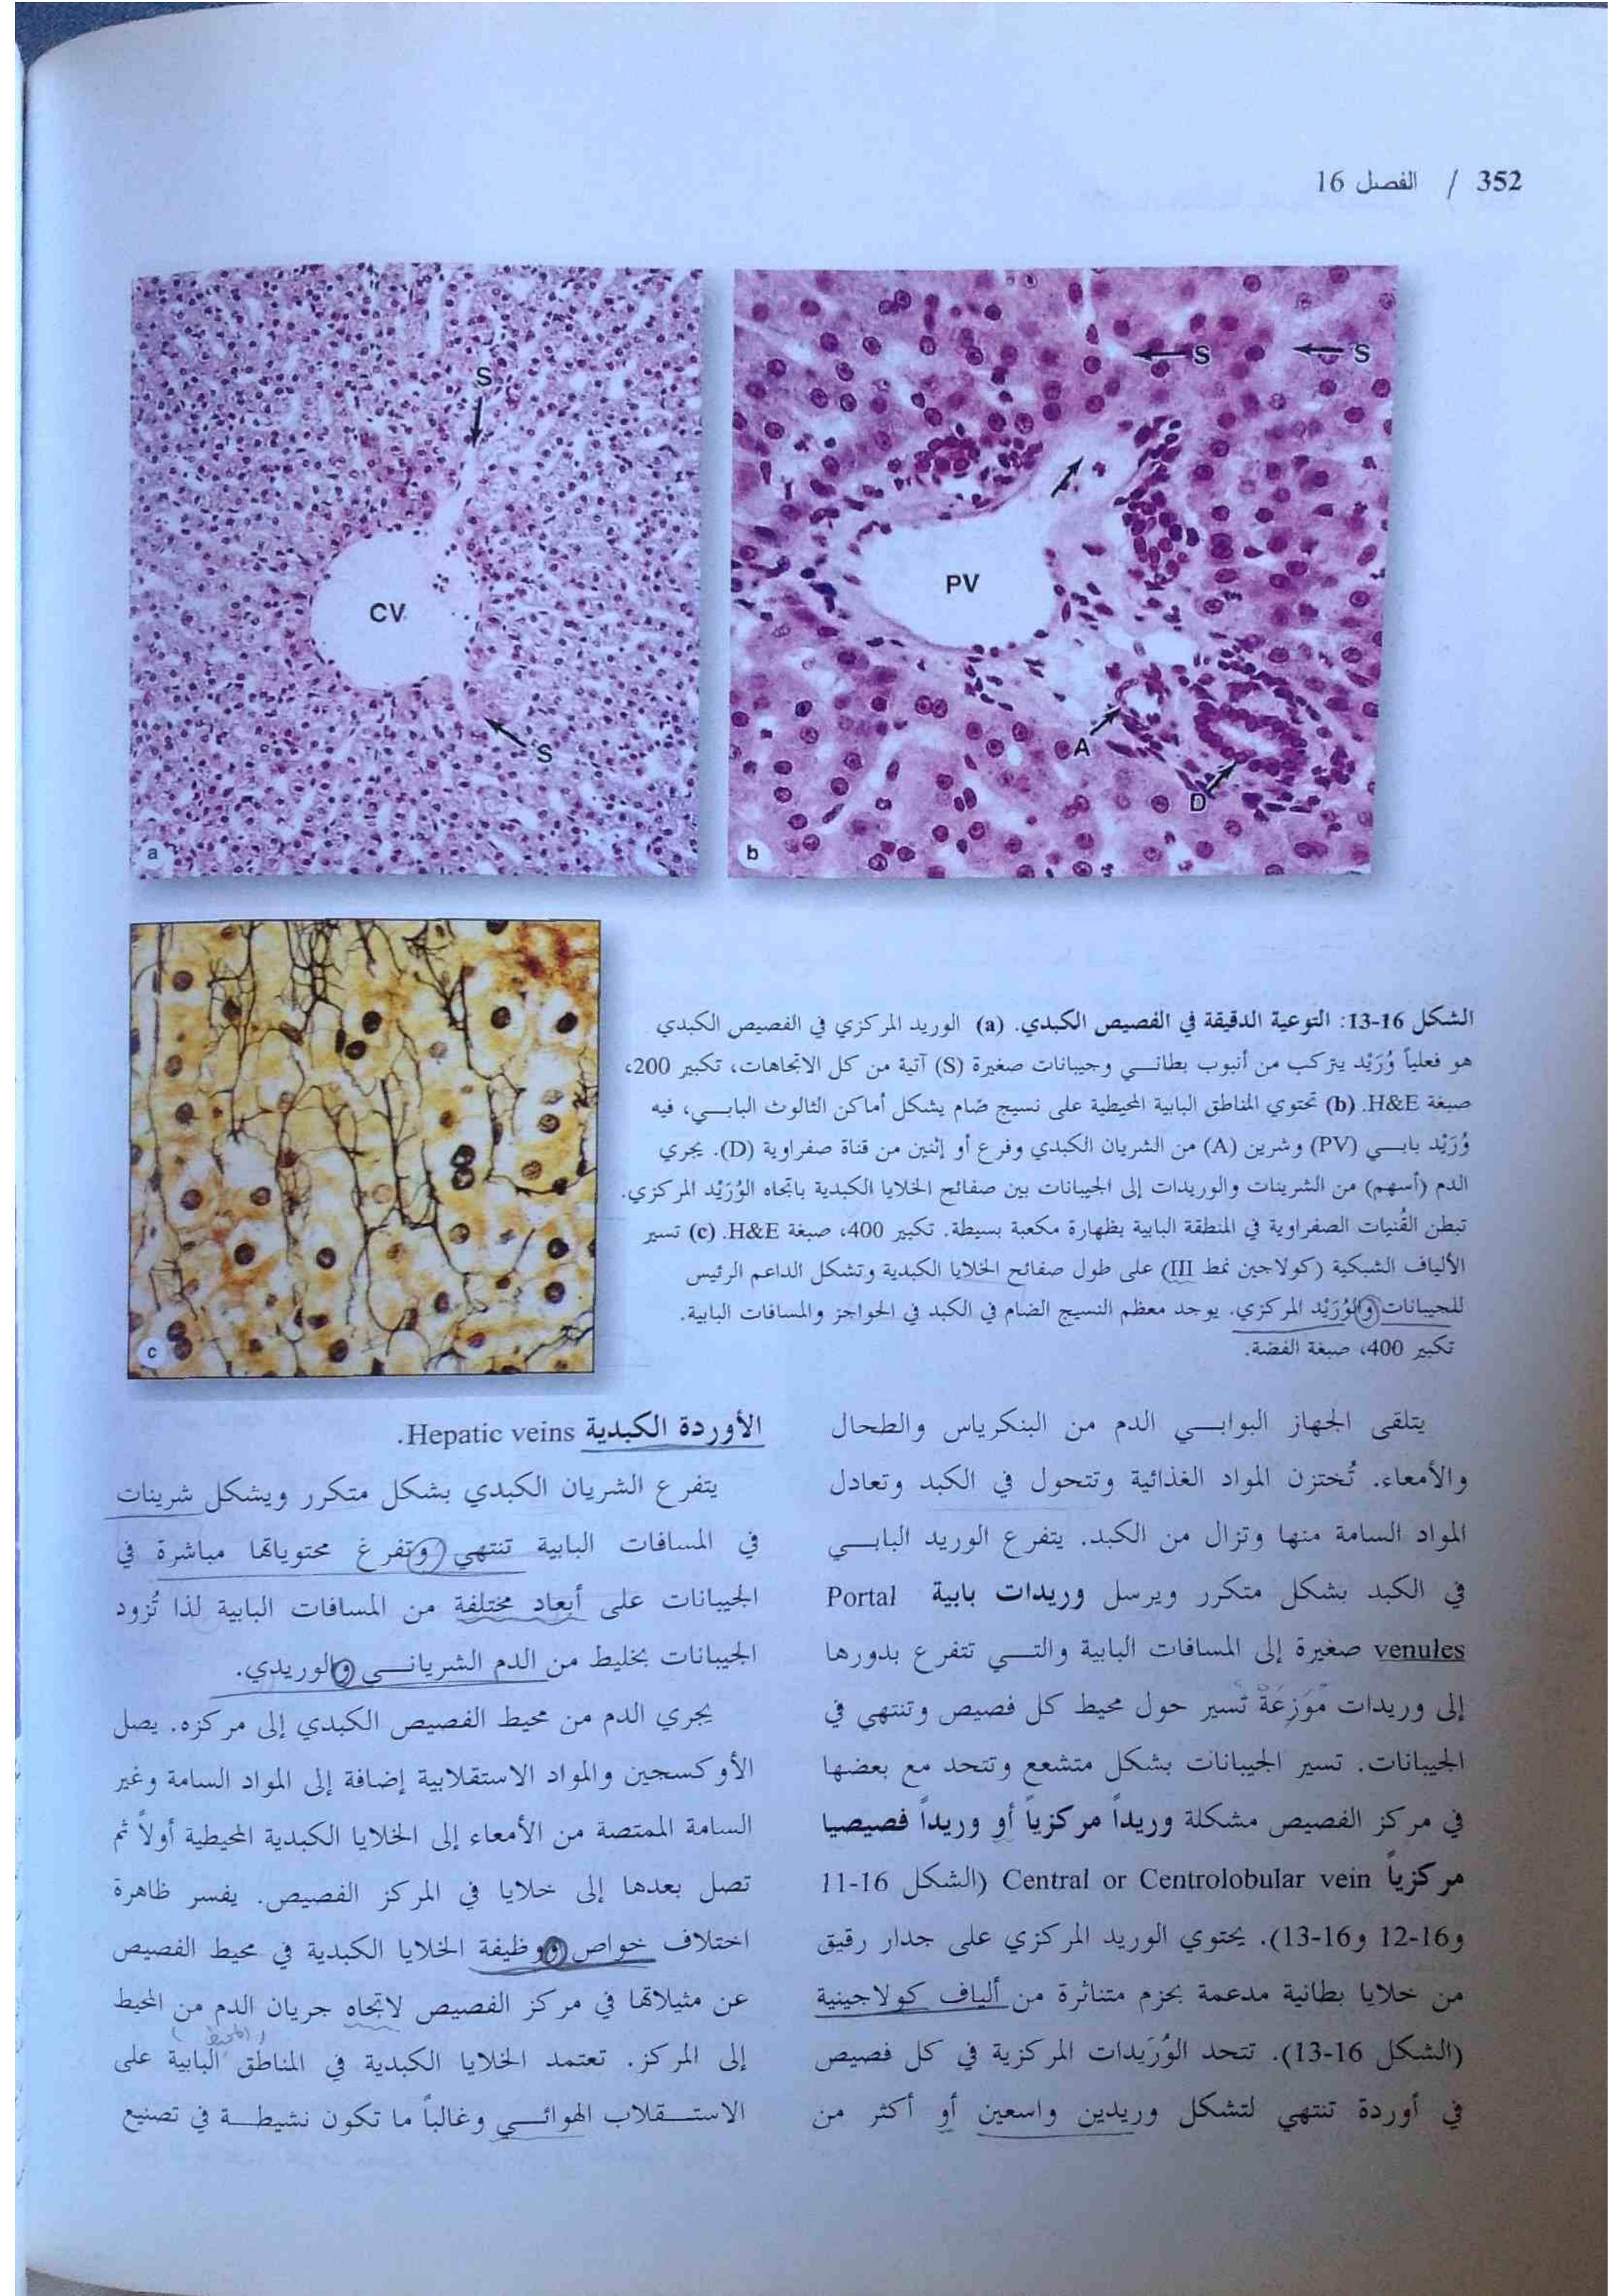 352 / الفصل 16
S
CV
S
a
S
S
PV
A
D
b
c
الشكل 16-13: التوعية الدقيقة في الفصيص الكبدي. (a) الوريد المركزي في الفصيص الكبدي
هو فعلياً وُرَيْد يتركب من أنبوب بطاني وجيبانات صغيرة (S) آتية من كل الاتجاهات، تكبير 200،
صبغة H&E. (b) تحتوي المناطق البابية المحيطية على نسيج ضام يشكل أماكن الثالوث البابي، فيه
وُرَيْد بابي (PV) وشرين (A) من الشريان الكبدي وفرع أو إثنين من قناة صفراوية (D). يجري
الدم (أسهم) من الشرينات والوريدات إلى الجيبانات بين صفائح الخلايا الكبدية باتجاه الوُرَيْد المركزي.
تبطن القُنيات الصفراوية في المنطقة البابية بظهارة مكعبة بسيطة. تكبير 400، صبغة H&E. (c) تسير
الألياف الشبكية (كولاجين نمط III) على طول صفائح الخلايا الكبدية وتشكل الداعم الرئيس
للجيبانات والوُرَيْد المركزي. يوجد معظم النسيج الضام في الكبد في الحواجز والمسافات البابية.
تكبير 400، صبغة الفضة.
يتلقى الجهاز البوابي الدم من البنكرياس والطحال
والأمعاء. تُختزن المواد الغذائية وتتحول في الكبد وتعادل
المواد السامة منها وتزال من الكبد. يتفرع الوريد البابي
في الكبد بشكل متكرر ويرسل وريدات بابية Portal
venules صغيرة إلى المسافات البابية والتي تتفرع بدورها
إلى وريدات مُوَزِعَة تسير حول محيط كل فصيص وتنتهي في
الجيبانات. تسير الجيبانات بشكل متشعع وتتحد مع بعضها
في مركز الفصيص مشكلة وريداً مركزياً أو وريداً فصيصيا
مركزياً Central or Centrolobular vein (الشكل 16-11
و16-12 و16-13). يحتوي الوريد المركزي على جدار رقيق
من خلايا بطانية مدعمة بحزم متناثرة من ألياف كولاجينية
(الشكل 16-13). تتحد الوُرَيدات المركزية في كل فصيص
في أوردة تنتهي لتشكل وريدين واسعين أو أكثر من
الأوردة الكبدية Hepatic veins.
يتفرع الشريان الكبدي بشكل متكرر ويشكل شرينات
في المسافات البابية تنتهي وتفرغ محتوياتها مباشرة في
الجيبانات على أبعاد مختلفة من المسافات البابية لذا تُزود
الجيبانات بخليط من الدم الشرياني والوريدي.
يجري الدم من محيط الفصيص الكبدي إلى مركزه. يصل
الأوكسجين والمواد الاستقلابية إضافة إلى المواد السامة وغير
السامة الممتصة من الأمعاء إلى الخلايا الكبدية المحيطية أولاً ثم
تصل بعدها إلى خلايا في المركز الفصيص. يفسر ظاهرة
اختلاف خواص ووظيفة الخلايا الكبدية في محيط الفصيص
عن مثيلاتها في مركز الفصيص لاتجاه جريان الدم من المحيط
(المحيط)
إلى المركز. تعتمد الخلايا الكبدية في المناطق البابية على
الاستقلاب الهوائي وغالباً ما تكون نشيطة في تصنيع